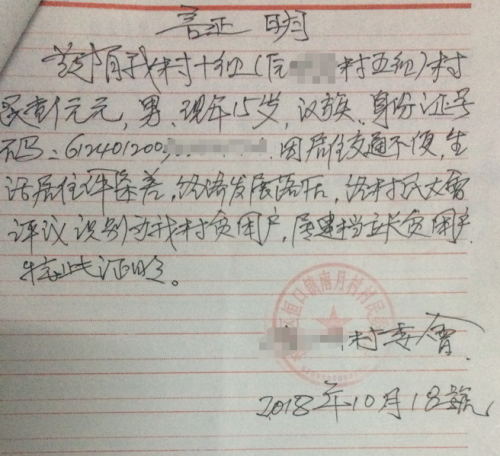 证明
兹有我村十组(后 村五组)村
民 元元,男、现年15岁,汉族、身份证号
码:612401200 因居住交通不便,生
活居住条件差,经济发展落后,经村民大会
评议识别为我村贫困户,属建档立卡贫困户
特此证明。
恒口镇南月村村民
村委会
2018年10月18号